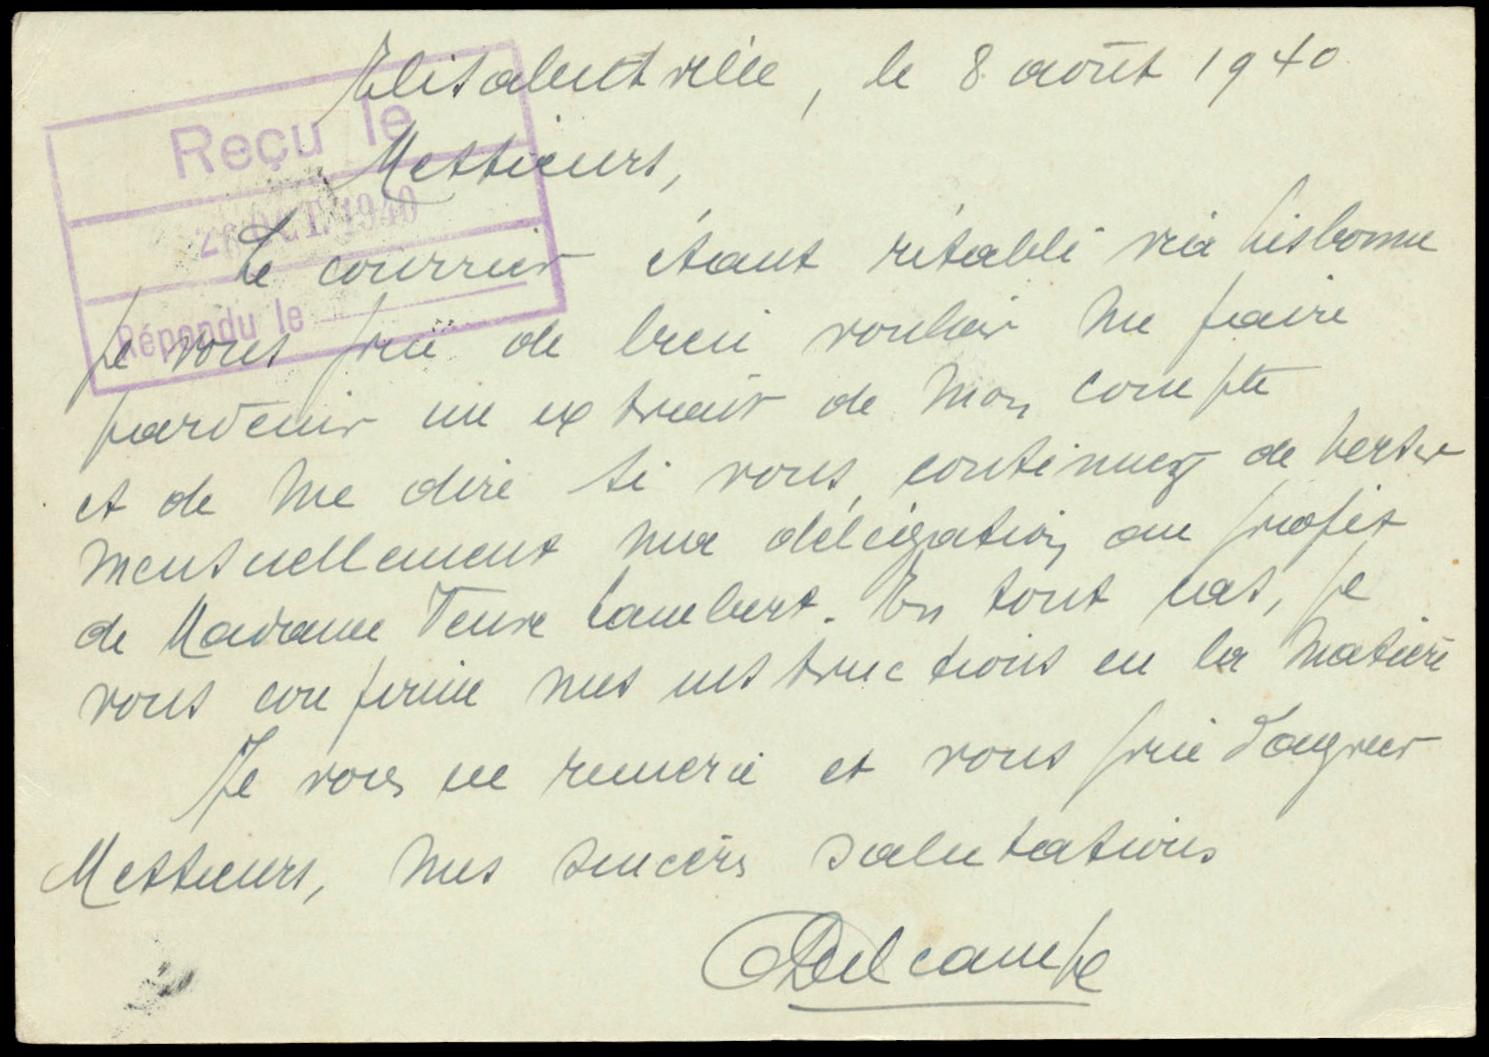 Elisabethville, le 8 août 1940
Reçu le
Messieurs,
OCT. 1940
Le courrier étant rétabli via Lisbonne
Répondu le
je vous prie de bien vouloir me faire
parvenir un extrait de mon compte
et de me dire si vous continuez de verser
mensuellement ma délégation au profit
de Madame Veuve Lambert. En tout cas, je
vous confirme mes instructions en la matière
Je vous en remercie et vous prie d'agréer
Messieurs, mes sincères salutations
Delcampe